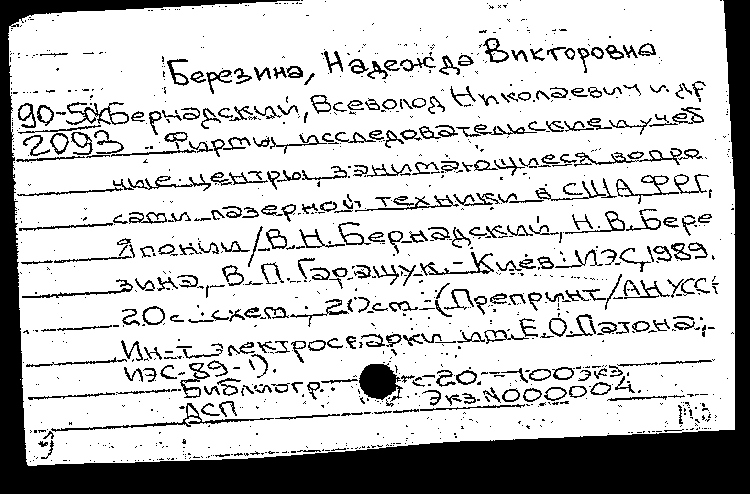 Березина, Надежда Викторовна
90-5 Бернадский, Всеволод Николаевич и др
2093 Фирмы, исследовательские и учеб
ные центры, занимающиеся вопро
сами лазерной техники в США, ФРГ,
Японии/В.Н.Бернадский, Н.В.Бере
зина, В.П.Гаращук.-Киев: ИЭС, 1989.
20с.:схем.; 20см.-(Препринт/АН УССР
Ин-т электросварки им. Е.О.Патона;-
ИЭС-89-1).
Библиогр.: с.20. - 100экз.
ДСП Экз.N000004.